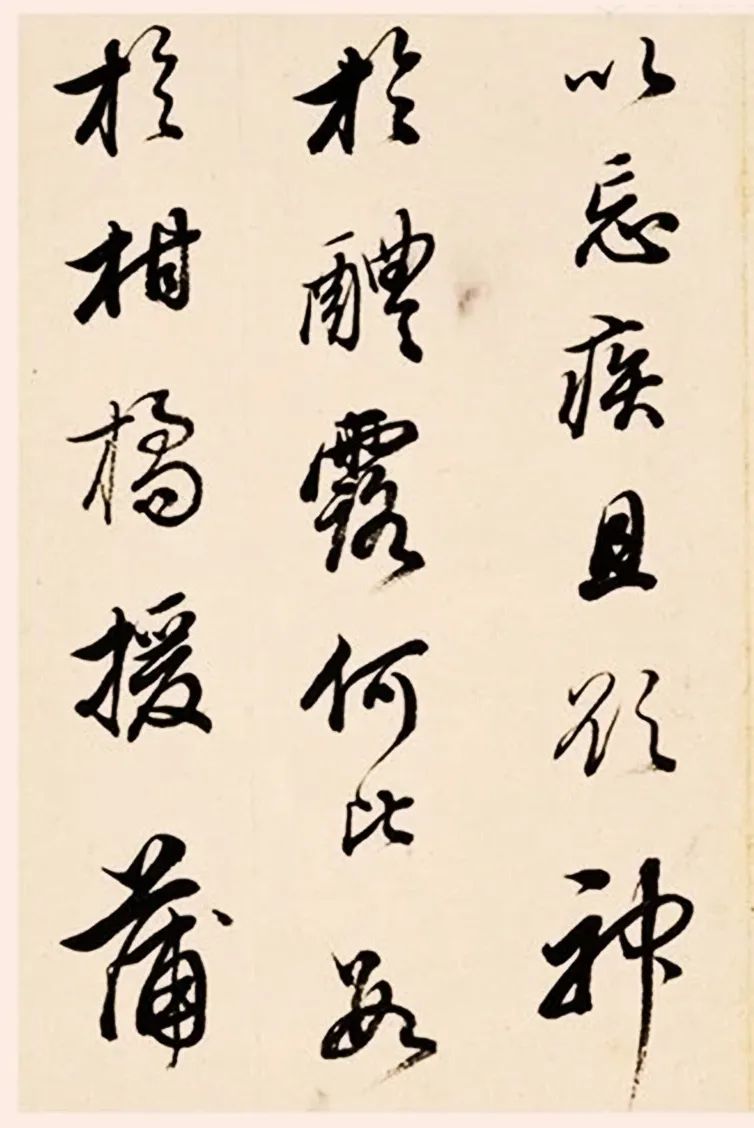 以忘疾且欲神
於醴露何比數
於柑橘援蒲